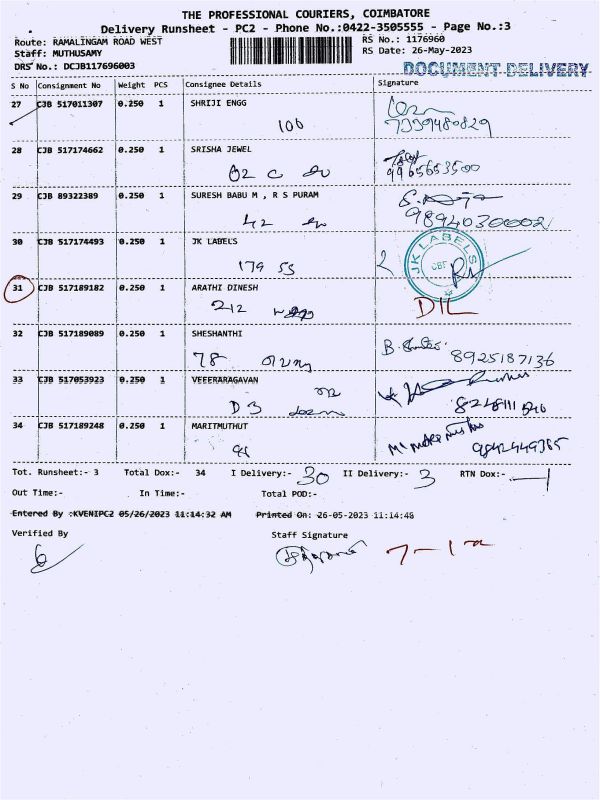 THE PROFESSIONAL COURIERS, COIMBATORE
Delivery Runsheet - PC2 - Phone No.:0422-3505555 - Page No.:3
Route: RAMALINGAM ROAD WEST
RS No.: 1176960
Staff: MUTHUSAMY
RS Date: 26-May-2023
DRS No.: DCJB117696003
DOCUMENT DELIVERY
S No Consignment No Weight PCS Consignee Details Signature
27 CJB 517011307 0.250 1 SHRIJI ENGG
106
7339480829
28 CJB 517174662 0.250 1 SRISHA JEWEL
9965653500
29 CJB 89322389 0.250 1 SURESH BABU M , R S PURAM
42
9894030002
30 CJB 517174493 0.250 1 JK LABELS
179 55
JK LABELS
CBE
31 CJB 517189182 0.250 1 ARATHI DINESH
212
DIL
32 CJB 517189089 0.250 1 SHESHANTHI
78
8925187136
33 CJB 517053923 0.250 1 VEEERARAGAVAN
D 3
34 CJB 517189248 0.250 1 MARITMUTHUT
9842449385
Tot. Runsheet:- 3 Total Dox:- 34 I Delivery:- 30 II Delivery:- 3 RTN Dox:- 1
Out Time:- In Time:- Total POD:-
Entered By :KVENIPC2 05/26/2023 11:14:32 AM Printed On: 26-05-2023 11:14:48
Verified By
Staff Signature